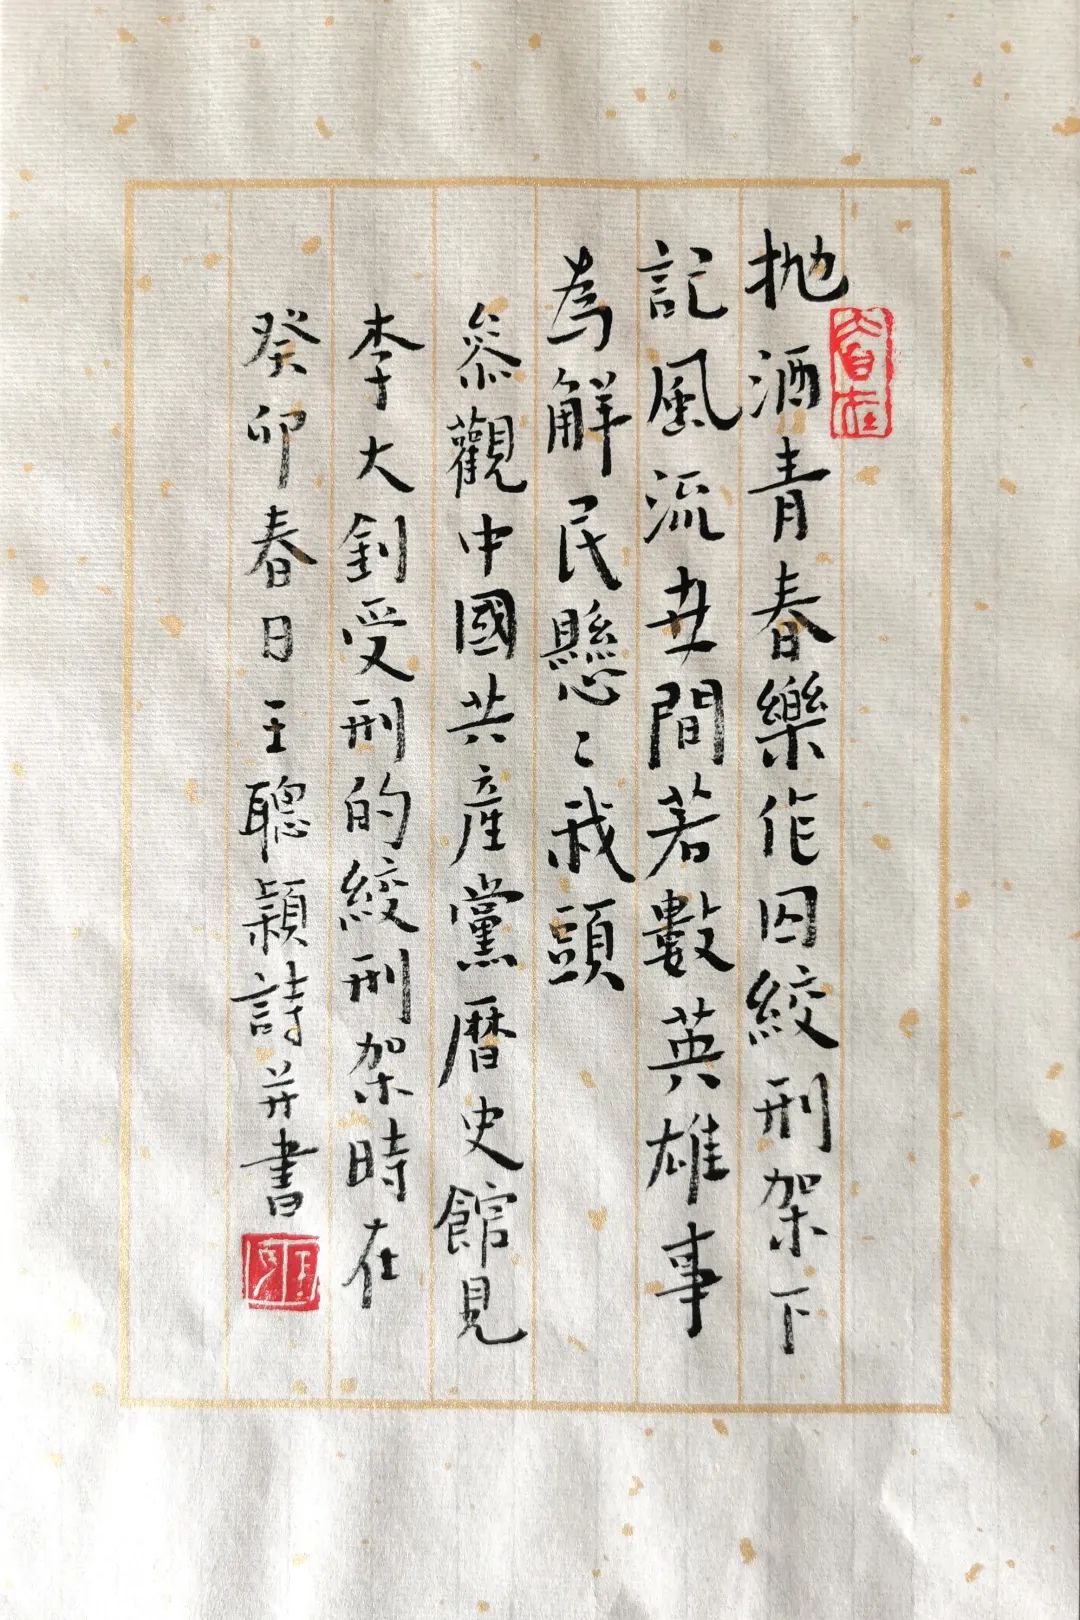 抛洒青春樂作囚絞刑架下
記風流世間若數英雄事
為解民懸〻我頭
參觀中國共產黨曆史館見
李大釗受刑的絞刑架時在
癸卯春日王聰穎詩并書